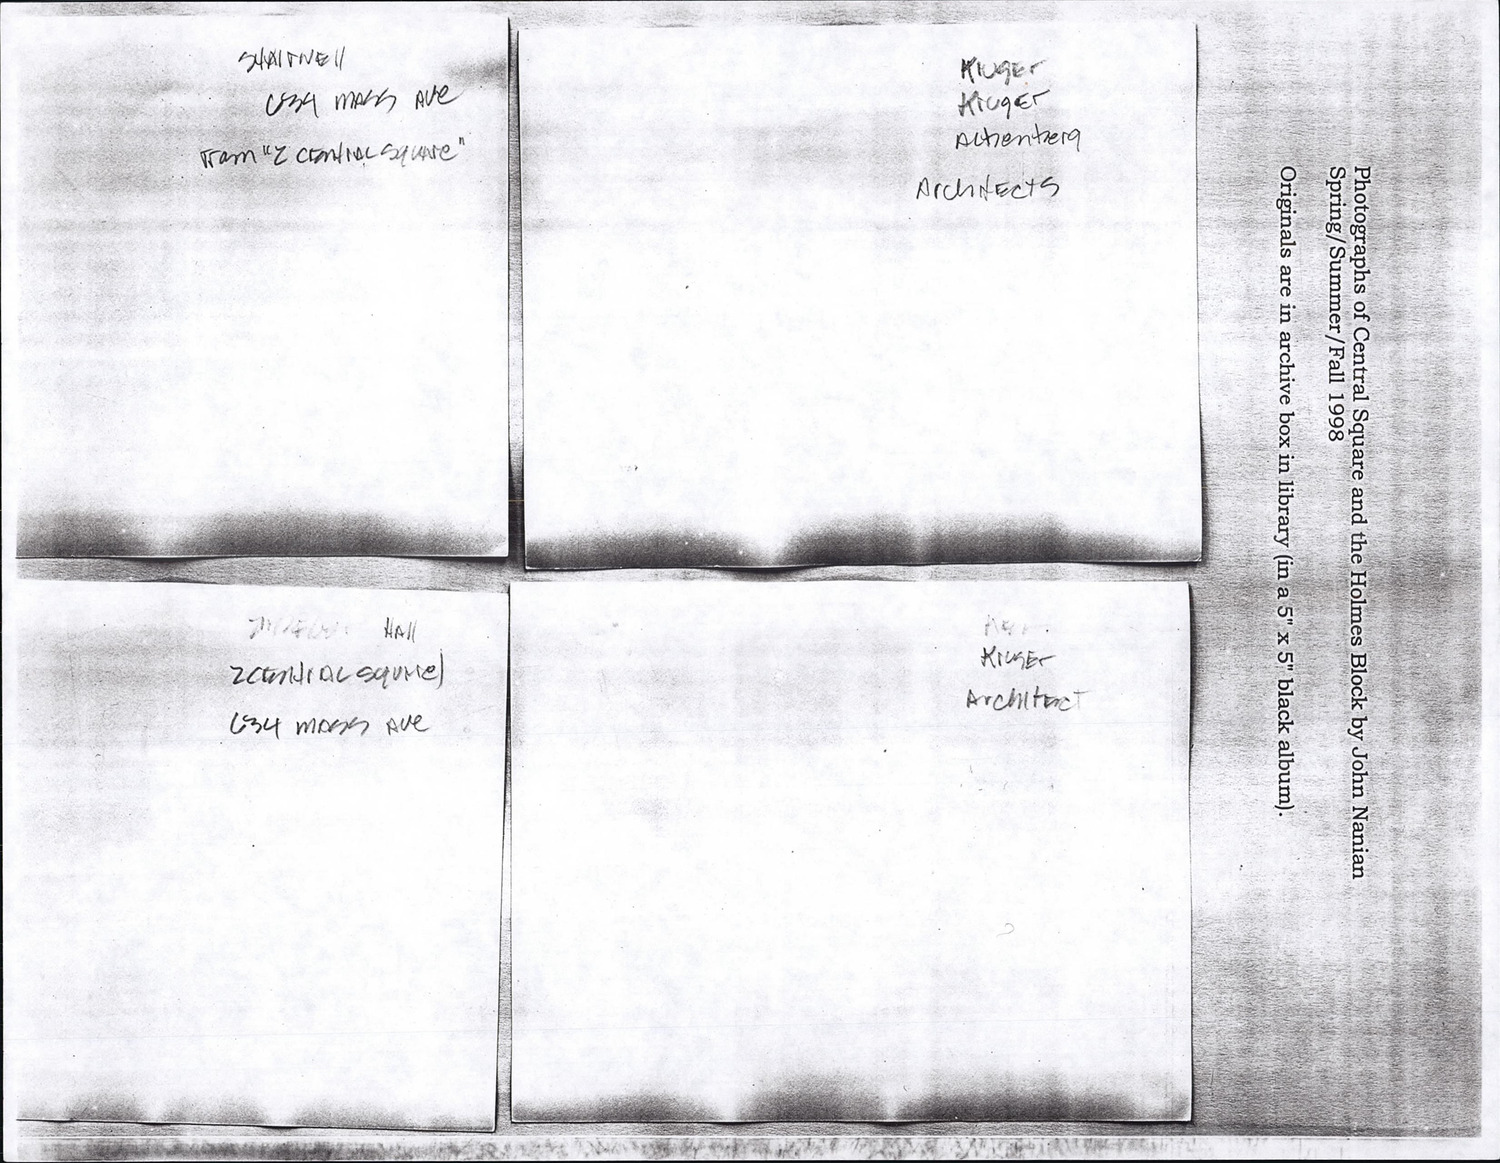 STAIRWELL
634 MASS AVE
From "2 CENTRAL SQUARE"
Kruger
Kruger
Altenberg
Architects
HALL
2 CENTRAL SQUARE
634 MASS AVE
Kruger
Architect
Photographs of Central Square and the Holmes Block by John Nanian
Spring/Summer/Fall 1998
Originals are in archive box in library (in a 5" x 5" black album).